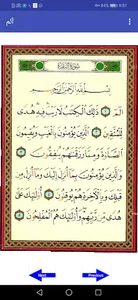 9:51
الم
سُورَةُ البَقَرَةِ
بِسْمِ ٱللَّهِ ٱلرَّحْمَٰنِ ٱلرَّحِيمِ
الٓمٓ ۝١ ذَٰلِكَ ٱلْكِتَٰبُ لَا رَيْبَ ۛ فِيهِ ۛ هُدًى
لِّلْمُتَّقِينَ ۝٢ ٱلَّذِينَ يُؤْمِنُونَ بِٱلْغَيْبِ وَيُقِيمُونَ
ٱلصَّلَوٰةَ وَمِمَّا رَزَقْنَٰهُمْ يُنفِقُونَ ۝٣
وَٱلَّذِينَ يُؤْمِنُونَ بِمَآ أُنزِلَ إِلَيْكَ وَمَآ أُنزِلَ مِن
قَبْلِكَ وَبِٱلْءَاخِرَةِ هُمْ يُوقِنُونَ ۝٤ أُو۟لَٰٓئِكَ عَلَىٰ
هُدًى مِّن رَّبِّهِمْ وَأُو۟لَٰٓئِكَ هُمُ ٱلْمُفْلِحُونَ ۝٥
Next
Previous